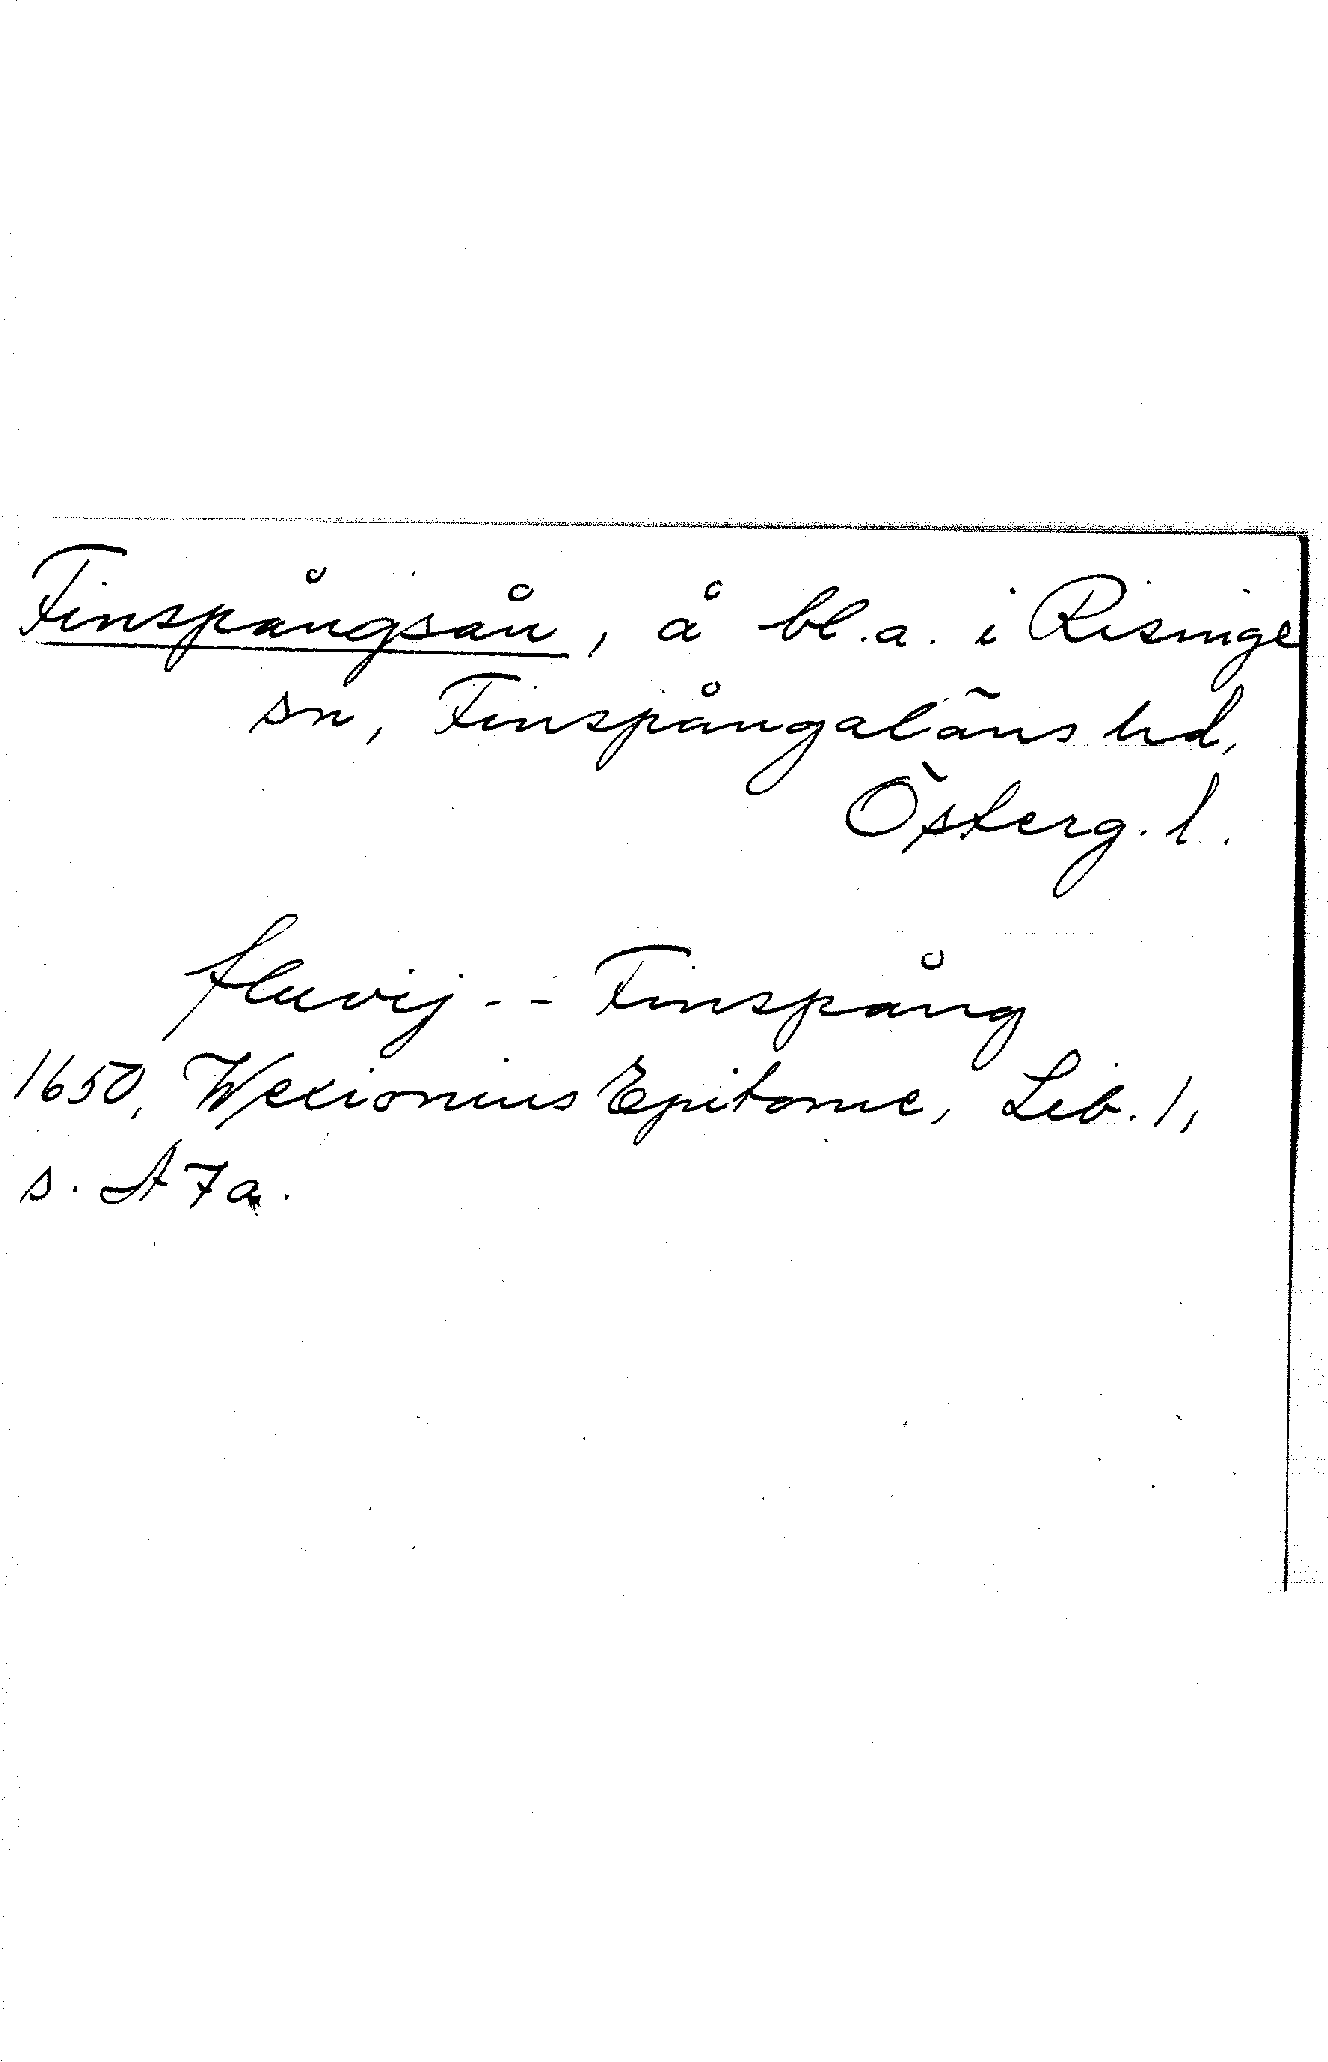 Finspångsån, å bl.a. i Risinge
sn, Finspångaläns hd,
Österg. l.
fluvij -- Finspång
1650, Wexionius Epitome, Lib. 1,
s. A 7 a.